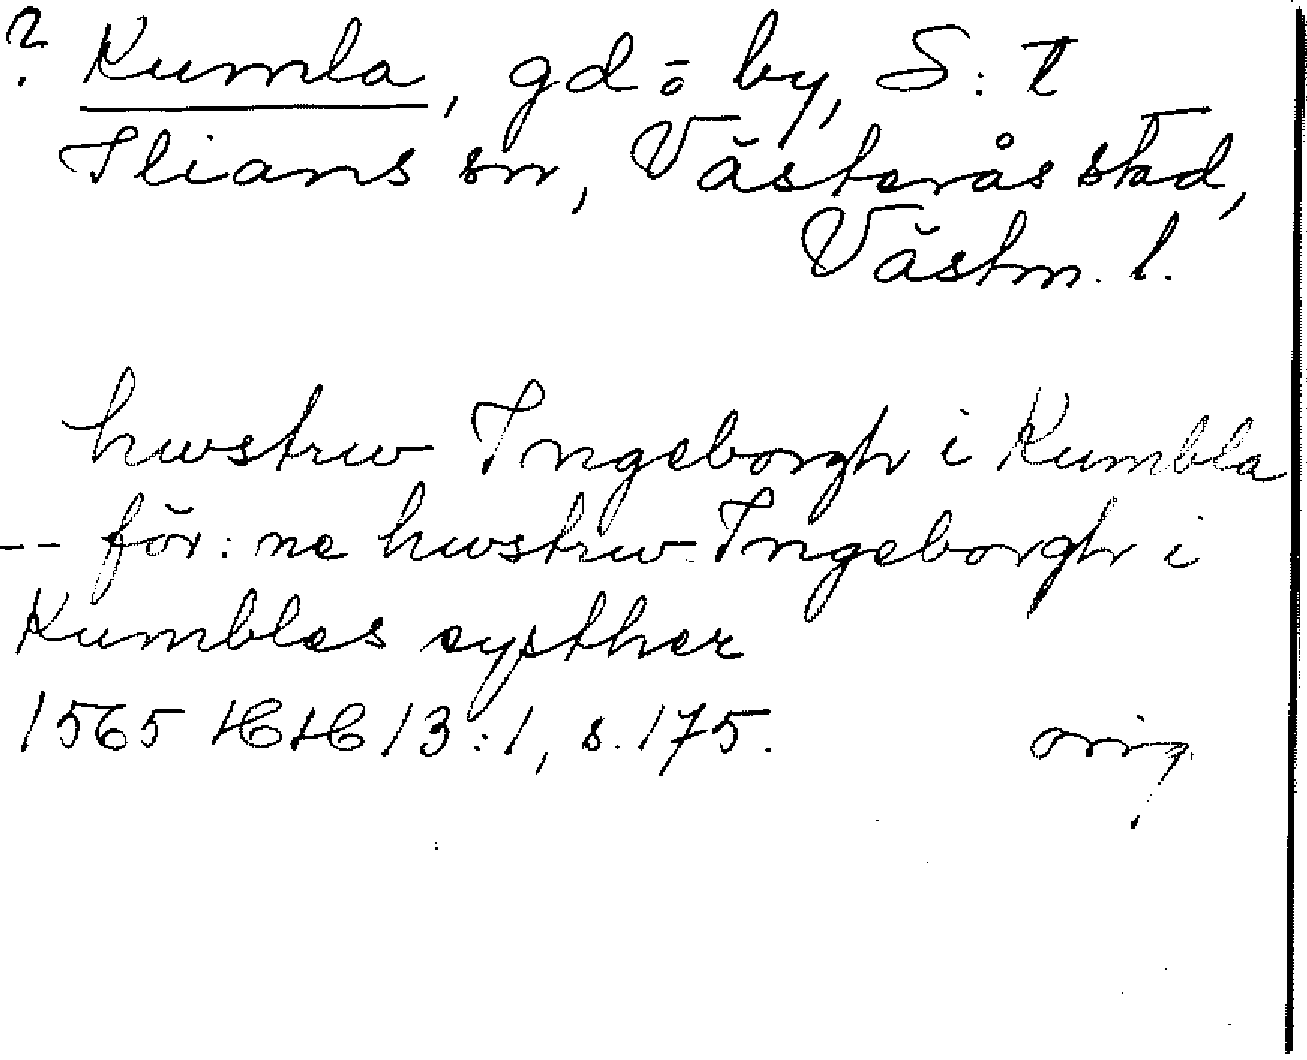 ? Kumla, gd = by, S:t
Ilians sn, Västerås stad,
Västm. l.
hwstrw Ingeborgh i Kumbla
-- för:ne hwstrw Ingeborgh i
Kumblas systher
1565 HH 13:1, s. 175. orig.